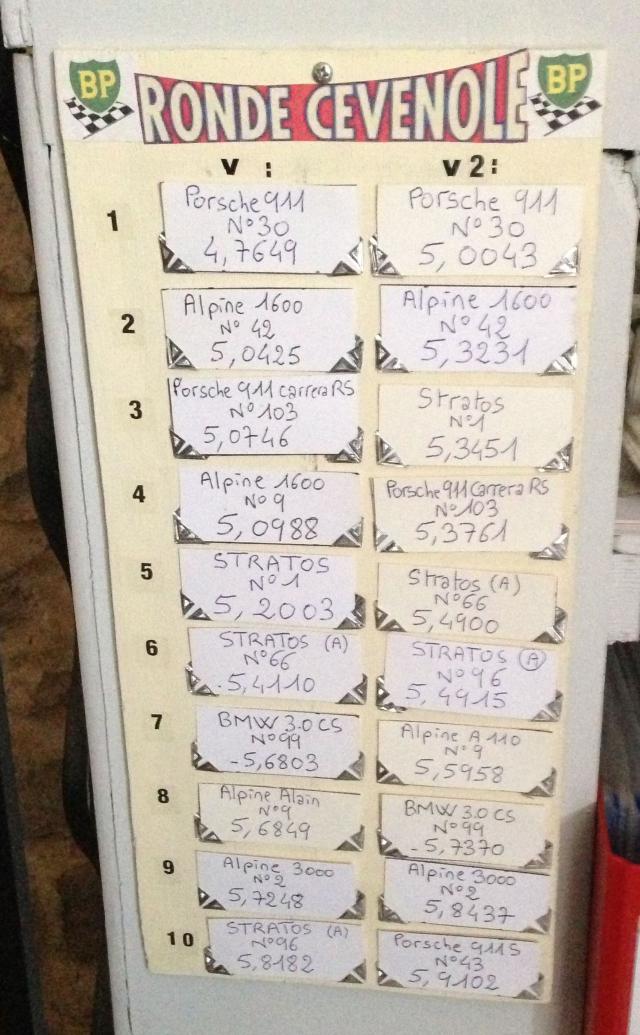 BP
RONDE CEVENOLE
BP
V :
V2:
1
Porsche 911
N°30
4,7649
Porsche 911
N°30
5,0043
2
Alpine 1600
N° 42
5,0425
Alpine 1600
N° 42
5,3231
3
Porsche 911 Carrera RS
N°103
5,0746
Stratos
N°1
5,3451
4
Alpine 1600
N°9
5,0988
Porsche 911 Carrera RS
N°103
5,3761
5
STRATOS
N°1
5,2003
Stratos (A)
N°66
5,4900
6
STRATOS (A)
N°66
5,4110
STRATOS (A)
N°96
5,4915
7
BMW 3.0 CS
N°99
-5,6803
Alpine A110
N°9
5,5958
8
Alpine Alain
N°9
5,6849
BMW 3.0 CS
N°99
-5,7370
9
Alpine 3000
N°2
5,7248
Alpine 3000
N°2
5,8437
10
STRATOS (A)
N°96
5,8182
Porsche 911S
N°43
5,9102